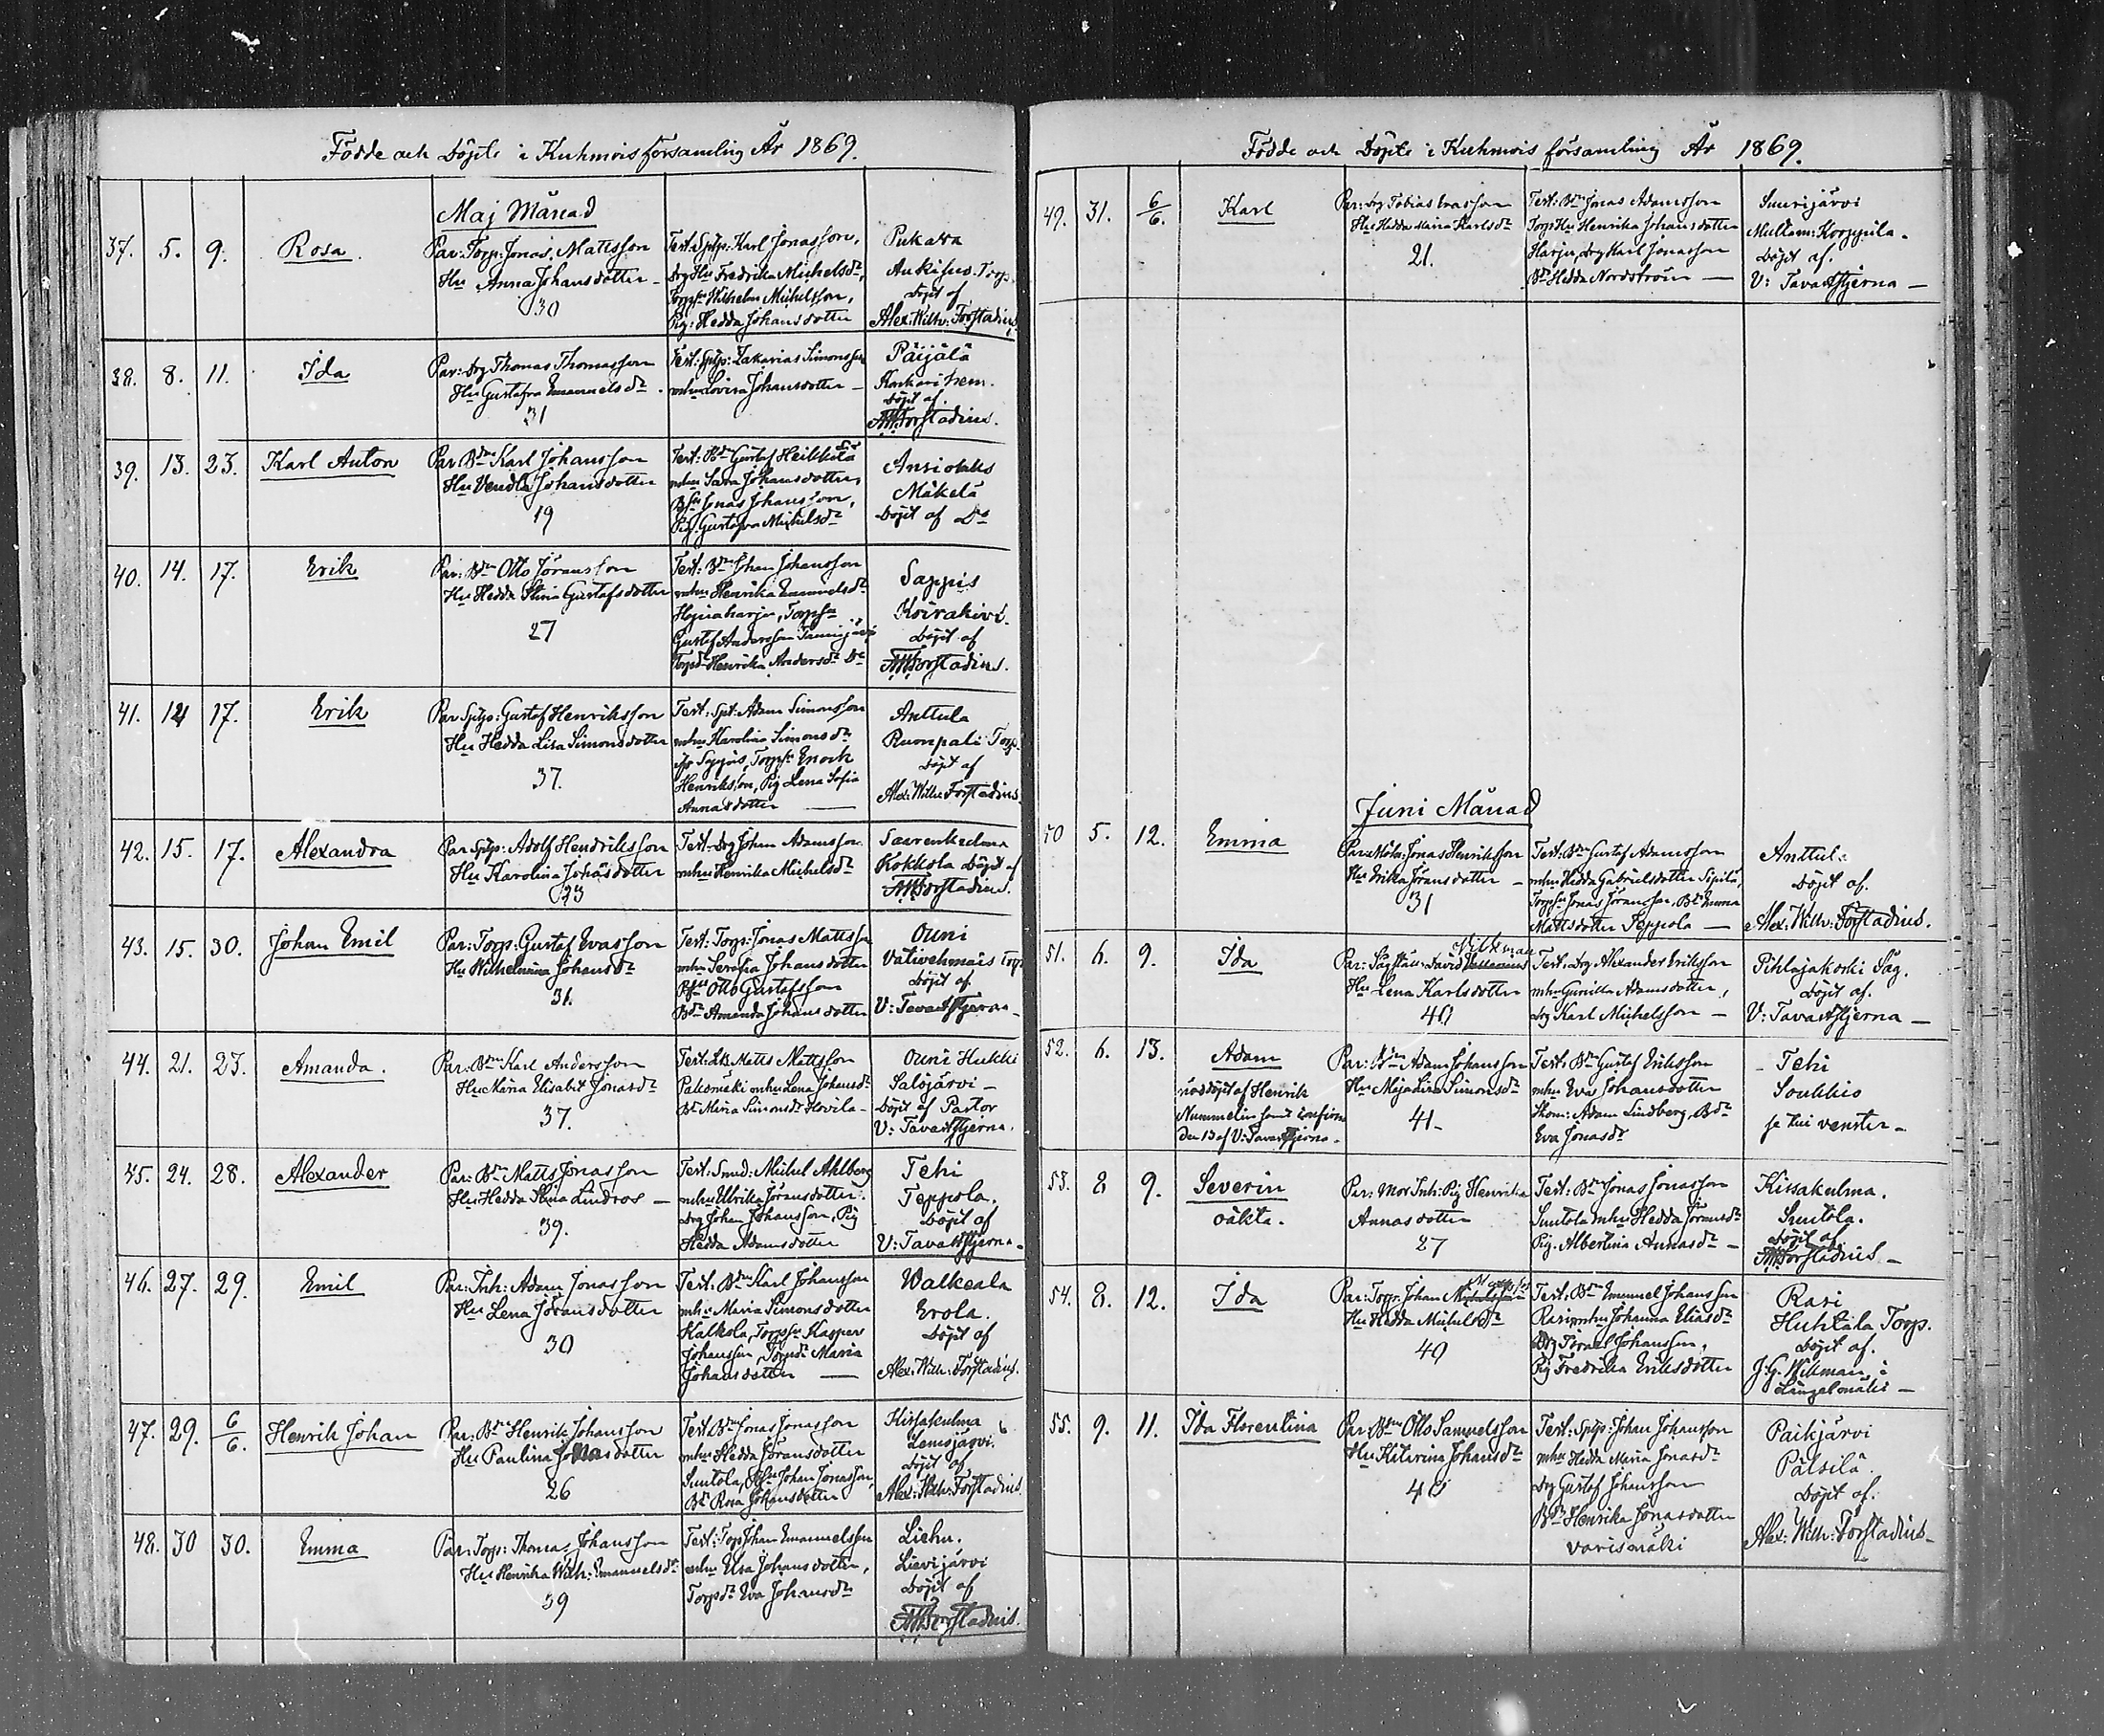 Födde och Döpte i Kuhmois församling År 1869.
Maj Månad
37. 5. 9. Rosa.
Par: Torp: Jonas Mattsson
Hu Anna Johansdotter
30
Test: Sptp: Karl Jonasson,
Drg Hu Fredrika Michelsdr,
Torpsn Wilhelm Michelsson,
Pig: Hedda Johansdotter
Pukara
Torp.
Döpt af
Alex: Wilh: Forstadius
38. 8. 11. Ida
Par: Drg Thomas Thomasson
Hu Gustafva Emanuelsdr.
31
Test: Sptp: Zakarias Simonsson
mhu Lovisa Johansdotter
Päijälä
hem.
Döpt af.
AWForstadius.
39. 13. 23. Karl Anton
Par Bdn Karl Johansson
Hu Vendla Johansdotter
19
Test: Bdn Gustaf Heikkilä
mhu Sara Johansdotter,
Bsn Jonas Johansson,
Pig. Gustafva Michelsdr
Ansiolaks
Mäkelä
Döpt af Do
40. 14. 17. Erik
Par: Bdn Otto Göransson
Hu Hedda Stina Gustafsdotter
27
Test: Bdn Johan Johansson
mhu Henrika Emanuelsdr
Torpsn
Gustaf Andersson
Torpdr Henrika Andersdr Do
Sappis
Koirakivi.
Döpt af
AWForstadius.
41. 14 17. Erik
Par Sptp: Gustaf Henriksson
Hu Hedda Lisa Simonsdotter
37.
Test: Spt: Adam Simonsson
mhu Karolina Simonsdr
Torpsn Enock
Henriksson, Pig Lena Sofia
Annasdotter
Anttula
Ruonpali Torp
Döpt af
Alex: Wilh: Forstadius
42. 15. 17. Alexandra
Par Sptp: Adolf Hendriksson
Hu Karolina Johansdotter
23
Test: Drg Johan Adamsson
mhu Henrika Michelsdr
Saarenkulma
Kokkola Döpt af
AWForstadius.
43. 15. 30. Johan Emil
Par: Torp: Gustaf Evasson
Hu Wilhelmina Johansdr
31.
Test: Torp: Jonas Mattsson
mhu Serafia Johansdotter
Bsn Otto Gustafsson
Bdr Amanda Johansdotter
Ouni
Torp
Döpt af
V: Tavaststjerna
44. 21. 23. Amanda.
Par: Bdn Karl Andersson
Hu Maria Elisabet Jonasdr
37.
Test: Matts Mattsson
mhu Lena Johansdr
Bdr Maria Simonsdr Hovila
Ouni Hukki
Salojärvi
Döpt af Pastor
V: Tavaststjerna.
45. 24. 28. Alexander
Par: Bdn Matts Jonasson
Hu Hedda Stina Lindroos
39.
Test: Smed: Michel Ahlberg
mhu Ulrika Göransdotter.
Drg Johan Johansson, Pig
Hedda Adamsdotter
Tehi
Teppola.
Döpt af
V: Tavaststjerna
46. 27. 29. Emil
Par: Inh: Adam Jonasson
Hu Lena Göransdotter
30
Test: Bdn Karl Johansson
mhu Maria Simonsdotter
Kalkola, Torpsn Kasper
Johansson, Torpdr Maria
Johansdotter
Walkeala
Erola.
Döpt af
Alex: Wilh: Forstadius.
47. 29. 6/6. Henrik Johan
Par: Bdn Henrik Johansson
Hu Paulina Jonasdotter
26
Test: Bdn Jonas Jonasson
mhu Hedda Göransdotter
Suutola, Bsn Johan Jonasson,
Bdr Rosa Johansdotter
Kissakulma
Lemsjärvi.
Döpt af
Alex: Wilh: Forstadius
48. 30 30. Emma
Par: Torp: Thomas Johansson
Hu Henrika Wilh: Emanuelsdr
39
Test: Torp Johan Emanuelsson
mhu Elsa Johansdotter,
Torpdr Eva Johansdr
Liehu.
Lievijärvi
Döpt af
AWForstadius.
Födde och Döpte i Kuhmois församling År 1869.
49. 31. 6/6. Karl
Par: Drg Tobias Evasson
Hu Hedda Maria Karlsdr
21.
Test: Bdn Jonas Adamsson
Torp Hu Henrika Johansdotter
Harju, Drg Karl Jonasson
Bdr Hedda Nordström
Suurijärvi
Multam: Korppila.
Döpt af.
V: Tavaststjerna
Juni Månad
50 5. 12. Emma
Par: Jonas Henriksson
Hu Erika Göransdotter
31
Test: Bdn Gustaf Adamsson
mhu Hedda Gabrielsdotter Sipilä,
Torpsn Jonas Göransson, Bdr Emma
Mattsdotter Seppola
Anttula
Döpt af.
Alex: Wilh: Forstadius.
51. 6. 9. Ida
Vilkman
Par: Sågställ: David
Hu Lena Karlsdotter
40
Test: Drg Alexander Eriksson
mhu Gunilla Adamsdotter,
Drg Karl Michelsson
Pihlajakoski Såg.
Döpt af.
V: Tavaststjerna
52. 6. 13. Adam
nöddöpt af Henrik
Nummelin samt confirm
den 13 af V: Tavaststjerna.
Par: Bdn Adam Johansson
Hu Maja Lisa Simonsdr
41
Test: Bdn Gustaf Eriksson
mhu Eva Johansdotter
Skom: Adam Lindberg, Bdr
Eva Jonasdr
Tehi
Soukkio
se till venster
53. 8 9. Severin
oäkta.
Par: Mor Inh: Pig Henrika
Annasdotter
27
Test: Bdn Jonas Jonasson
Suutola mhu Hedda Göransdr
Pig. Albertina Annasdr
Kissakulma.
Suutola.
Döpt af
AWForstadius
54. 8. 12. Ida
Par: Torp: Johan
Hu Hedda Michelsdr
40
Test: Bdn Emanuel Johansson
Rasi mhu Johanna Eliasdr
Drg Johansson,
Pig Fredrika Eriksdotter
Rasi
Huhtala Torp.
Döpt af.
J. G. Wikman i
Längelmäki
55. 9. 11. Ida Florentina
Par: Bdn Otto Samuelsson
Hu Katarina Johansdr
40
Test: Sptp: Johan Johansson
mhu Hedda Maria Jonasdr
Drg Gustaf Johansson
Bdr Henrika Jonasdotter
Varismäki
Päikjärvi
Pälsilä
Döpt af.
Alex: Wilh: Forstadius